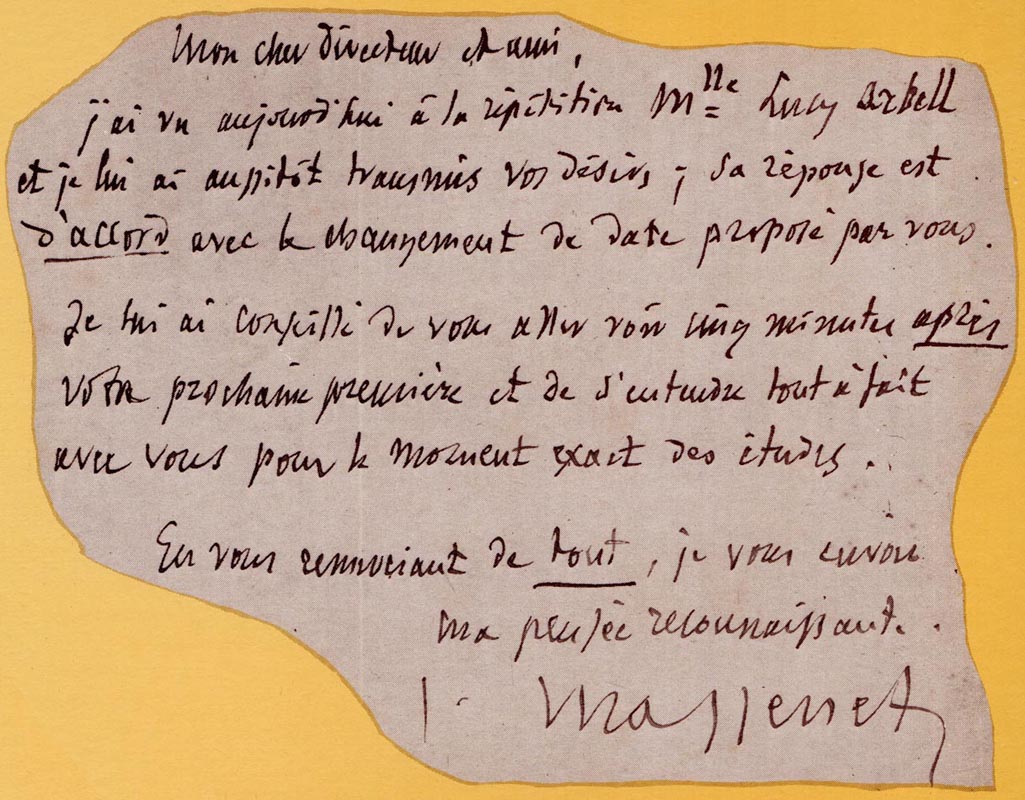 Mon cher Directeur et ami,
j'ai vu aujourd'hui à la répétition Mlle Lucy Arbell
et je lui ai aussitôt transmis vos désirs ; sa réponse est
d'accord avec le changement de date proposé par vous.
Je lui ai conseillé de vous aller voir cinq minutes après
votre prochaine première et de s'entendre tout à fait
avec vous pour le moment exact des études.
En vous remerciant de tout, je vous envoie
ma pensée reconnaissante.
J. Massenet